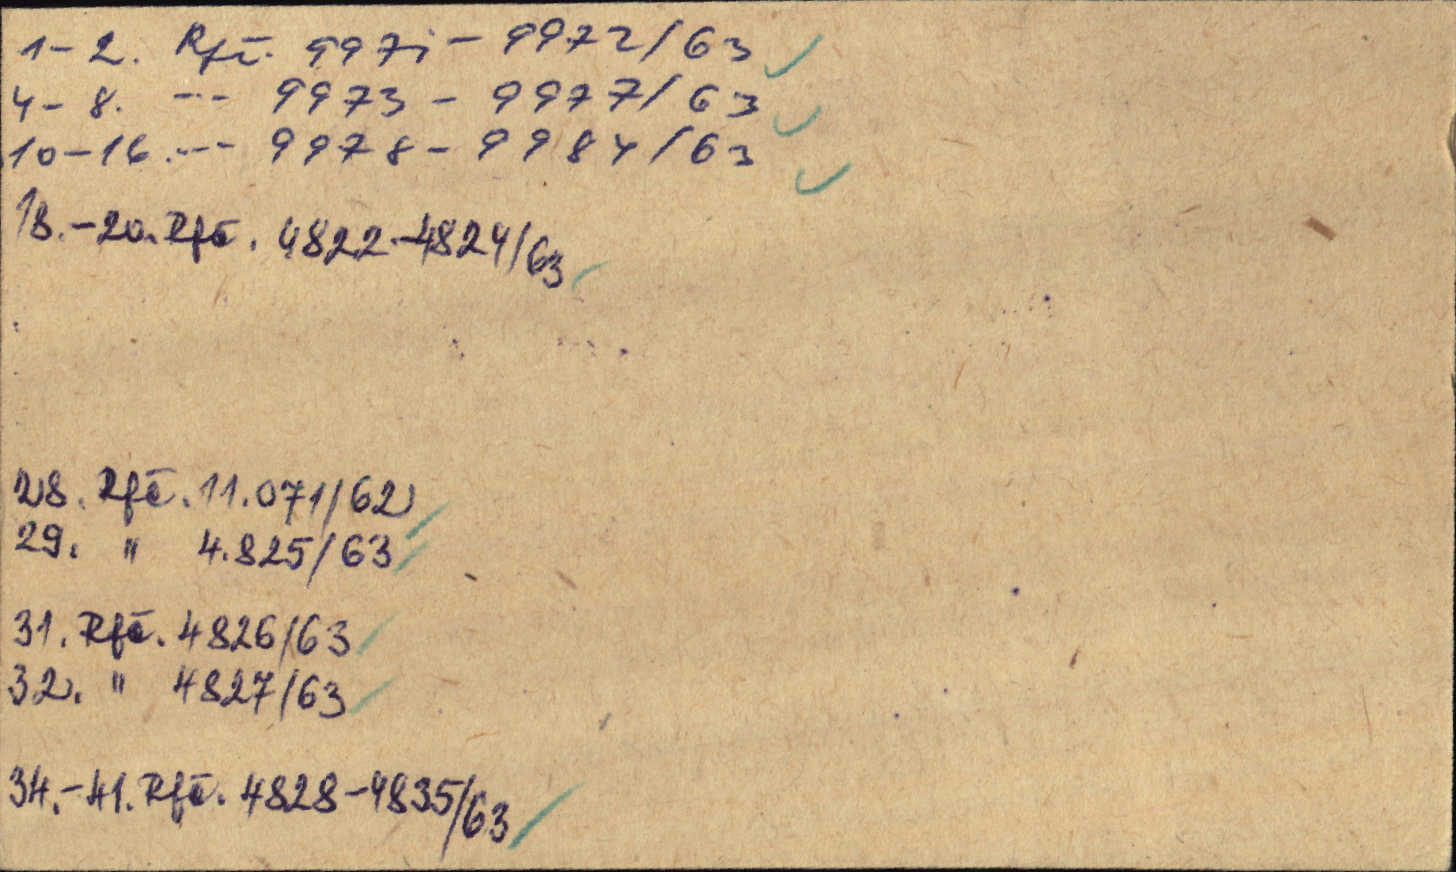 1-2. Rfč. 9971 - 9972/63
4-8. --- 9973 - 9977/63
10-16. --- 9978 - 9984/63
18.-20. Rfč. 4822-4824/63
28. Rfč. 11.071/62
29. " 4.825/63
31. Rfč. 4826/63
32. " 4827/63
34.-41. Rfč. 4828-4835/63